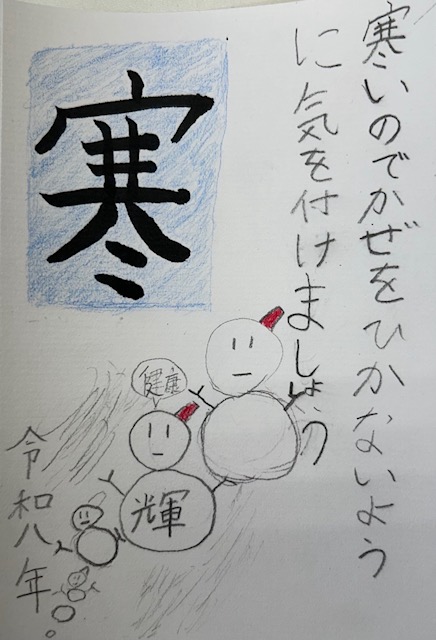 寒いのでかぜをひかないよう
に気を付けましょう
寒
健康
輝
令和八年。